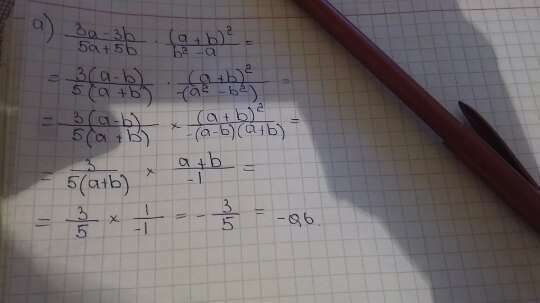 a) (3a-3b)/(5a+5b) · (a+b)²/(b²-a) =
= 3(a-b)/5(a+b) · (a+b)²/-(a²-b²) =
= 3(a-b)/5(a+b) × (a+b)²/-(a-b)(a+b) =
= 3/5(a+b) × (a+b)/-1 =
= 3/5 × 1/-1 = -3/5 = -0,6.